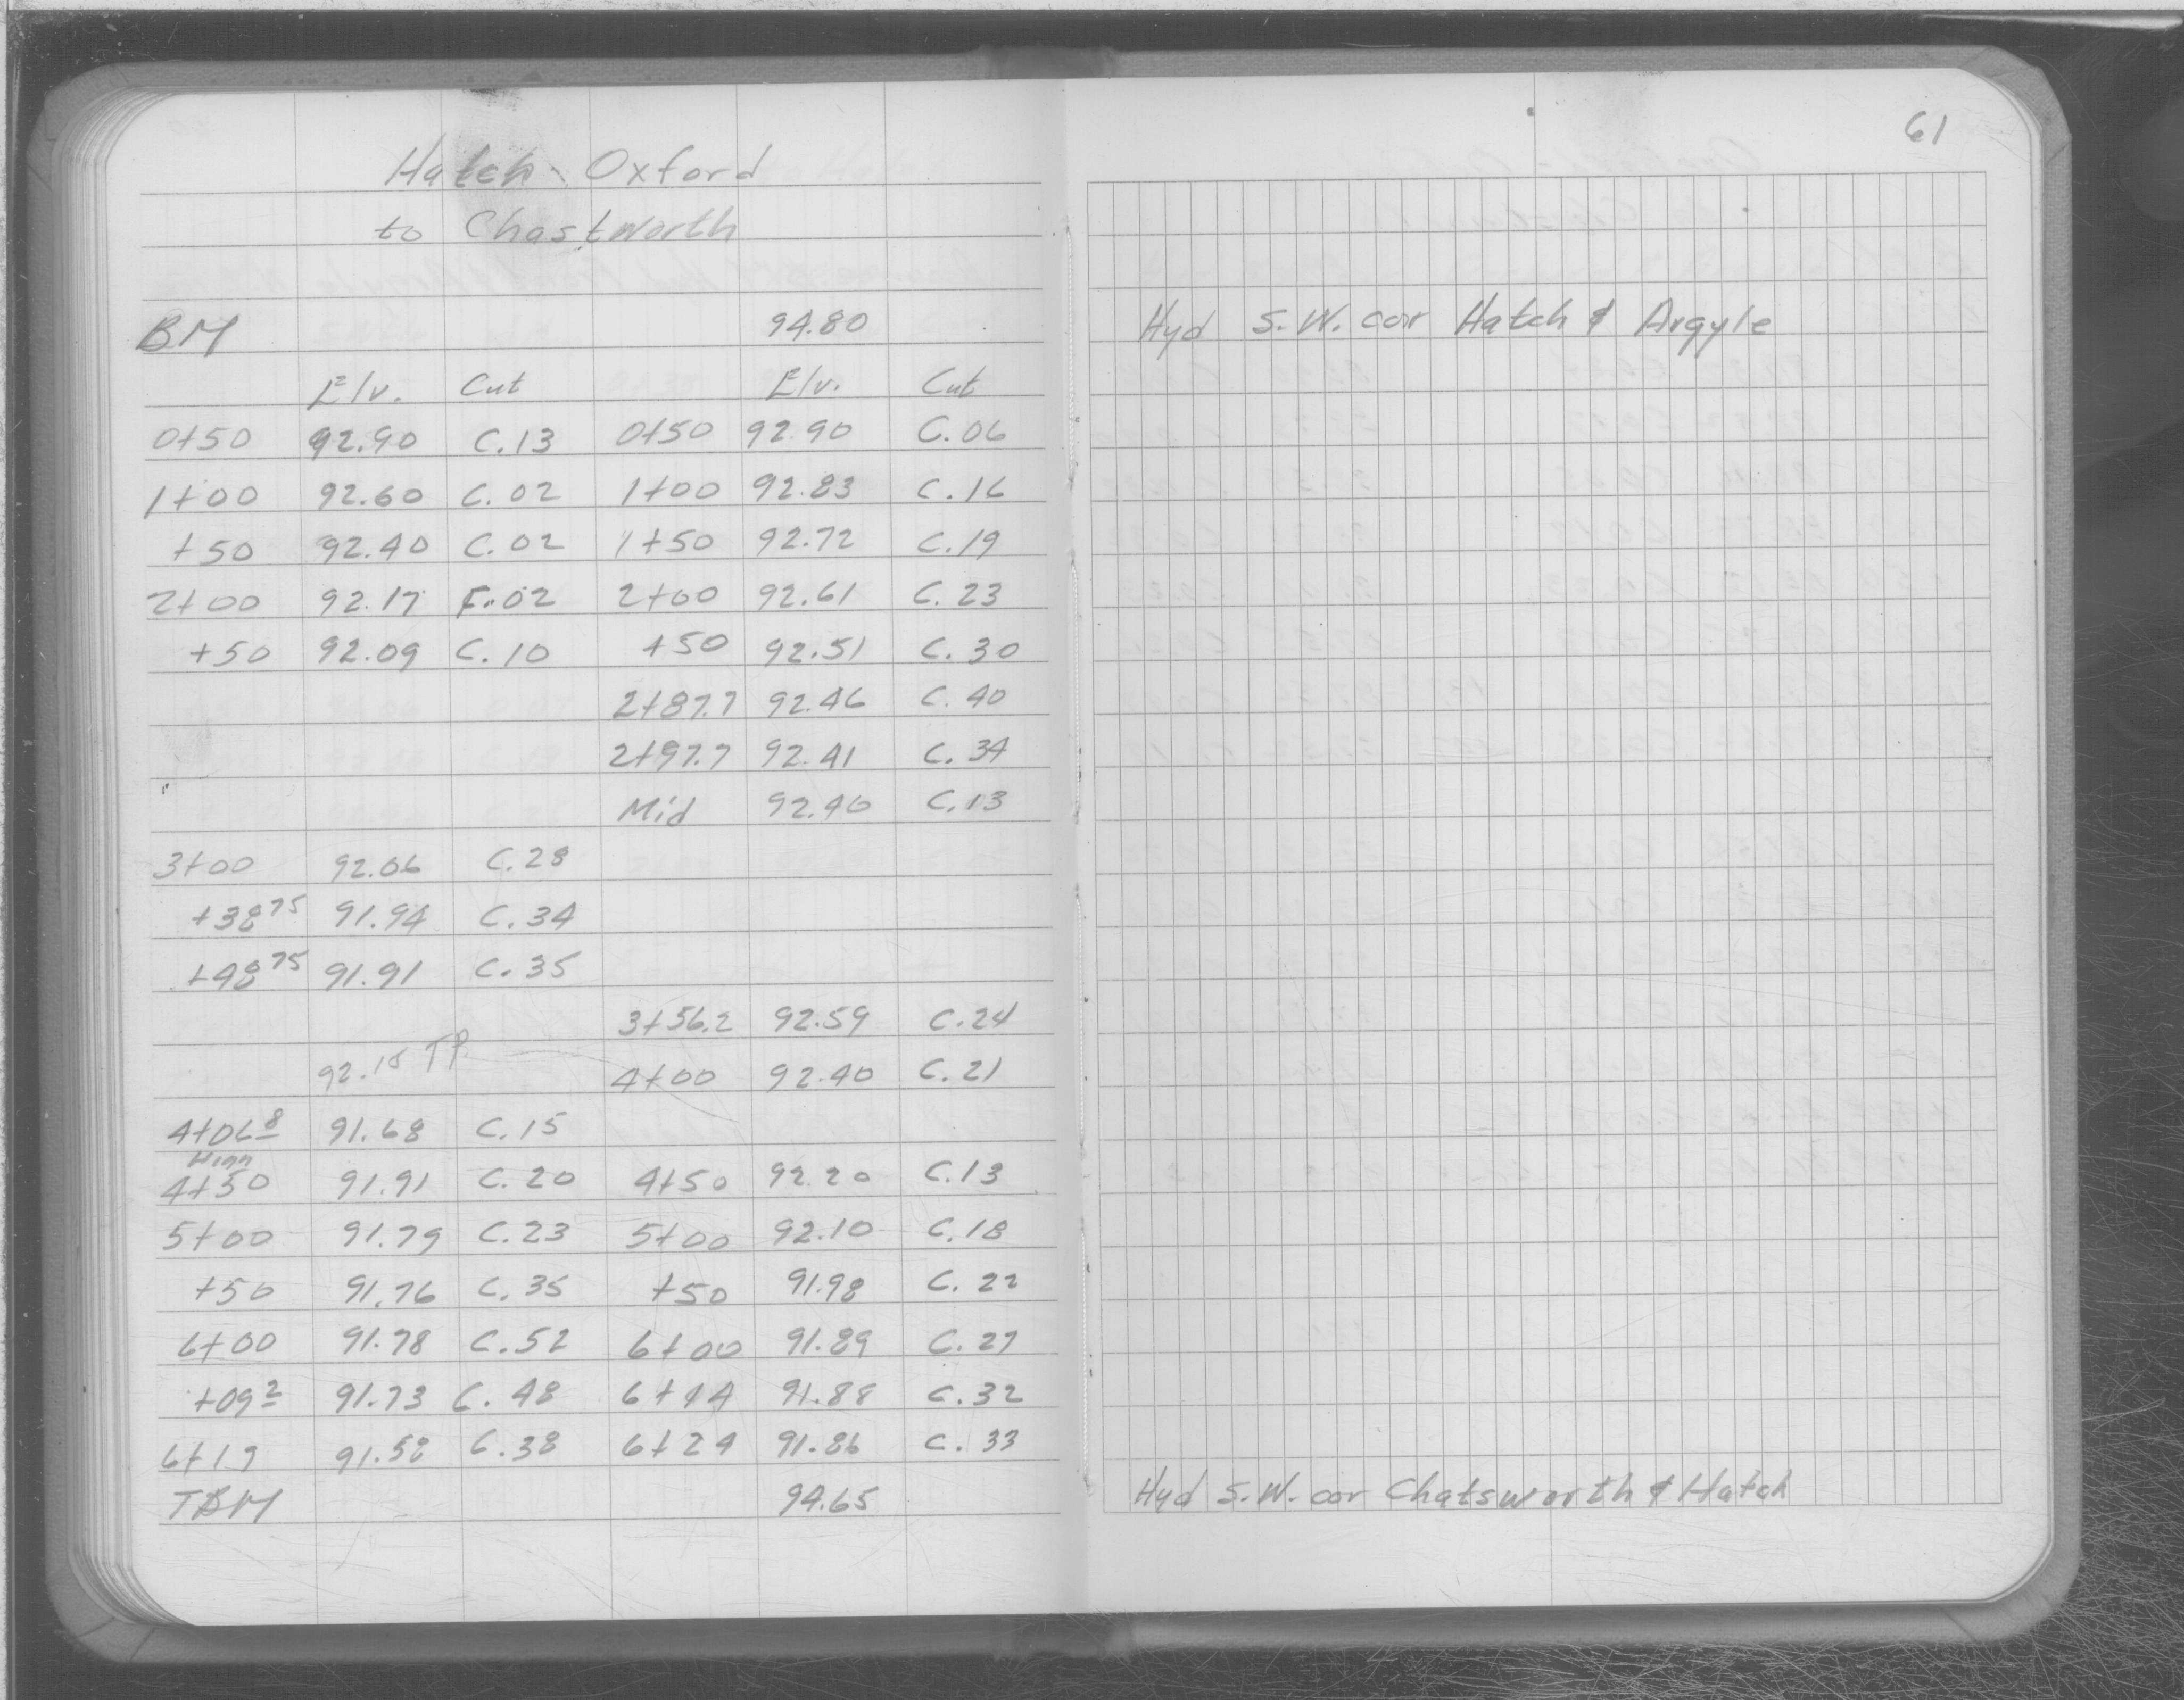 61
Hatch - Oxford
to Chastworth
BM 94.80 Hyd S.W. cor Hatch & Argyle
Elv. Cut Elv. Cut
0+50 92.90 C.13 0+50 92.90 C.06
1+00 92.60 C.02 1+00 92.83 C.16
+50 92.40 C.02 1+50 92.72 C.19
2+00 92.17 F.02 2+00 92.61 C.23
+50 92.09 C.10 +50 92.51 C.30
2+87.7 92.46 C.40
2+97.7 92.41 C.34
Mid 92.40 C.13
3+00 92.06 C.28
+38 75 91.94 C.34
+48 75 91.91 C.35
3+56.2 92.59 C.24
92.15 TP 4+00 92.40 C.21
4+06 8 91.68 C.15
4+50 91.91 C.20 4+50 92.20 C.13
5+00 91.79 C.23 5+00 92.10 C.18
+50 91.76 C.35 +50 91.98 C.22
6+00 91.78 C.52 6+00 91.89 C.27
+09 2 91.73 C.48 6+14 91.88 C.32
6+19 91.58 C.38 6+24 91.86 C.33
TBM 94.65 Hyd S.W. cor Chatsworth & Hatch